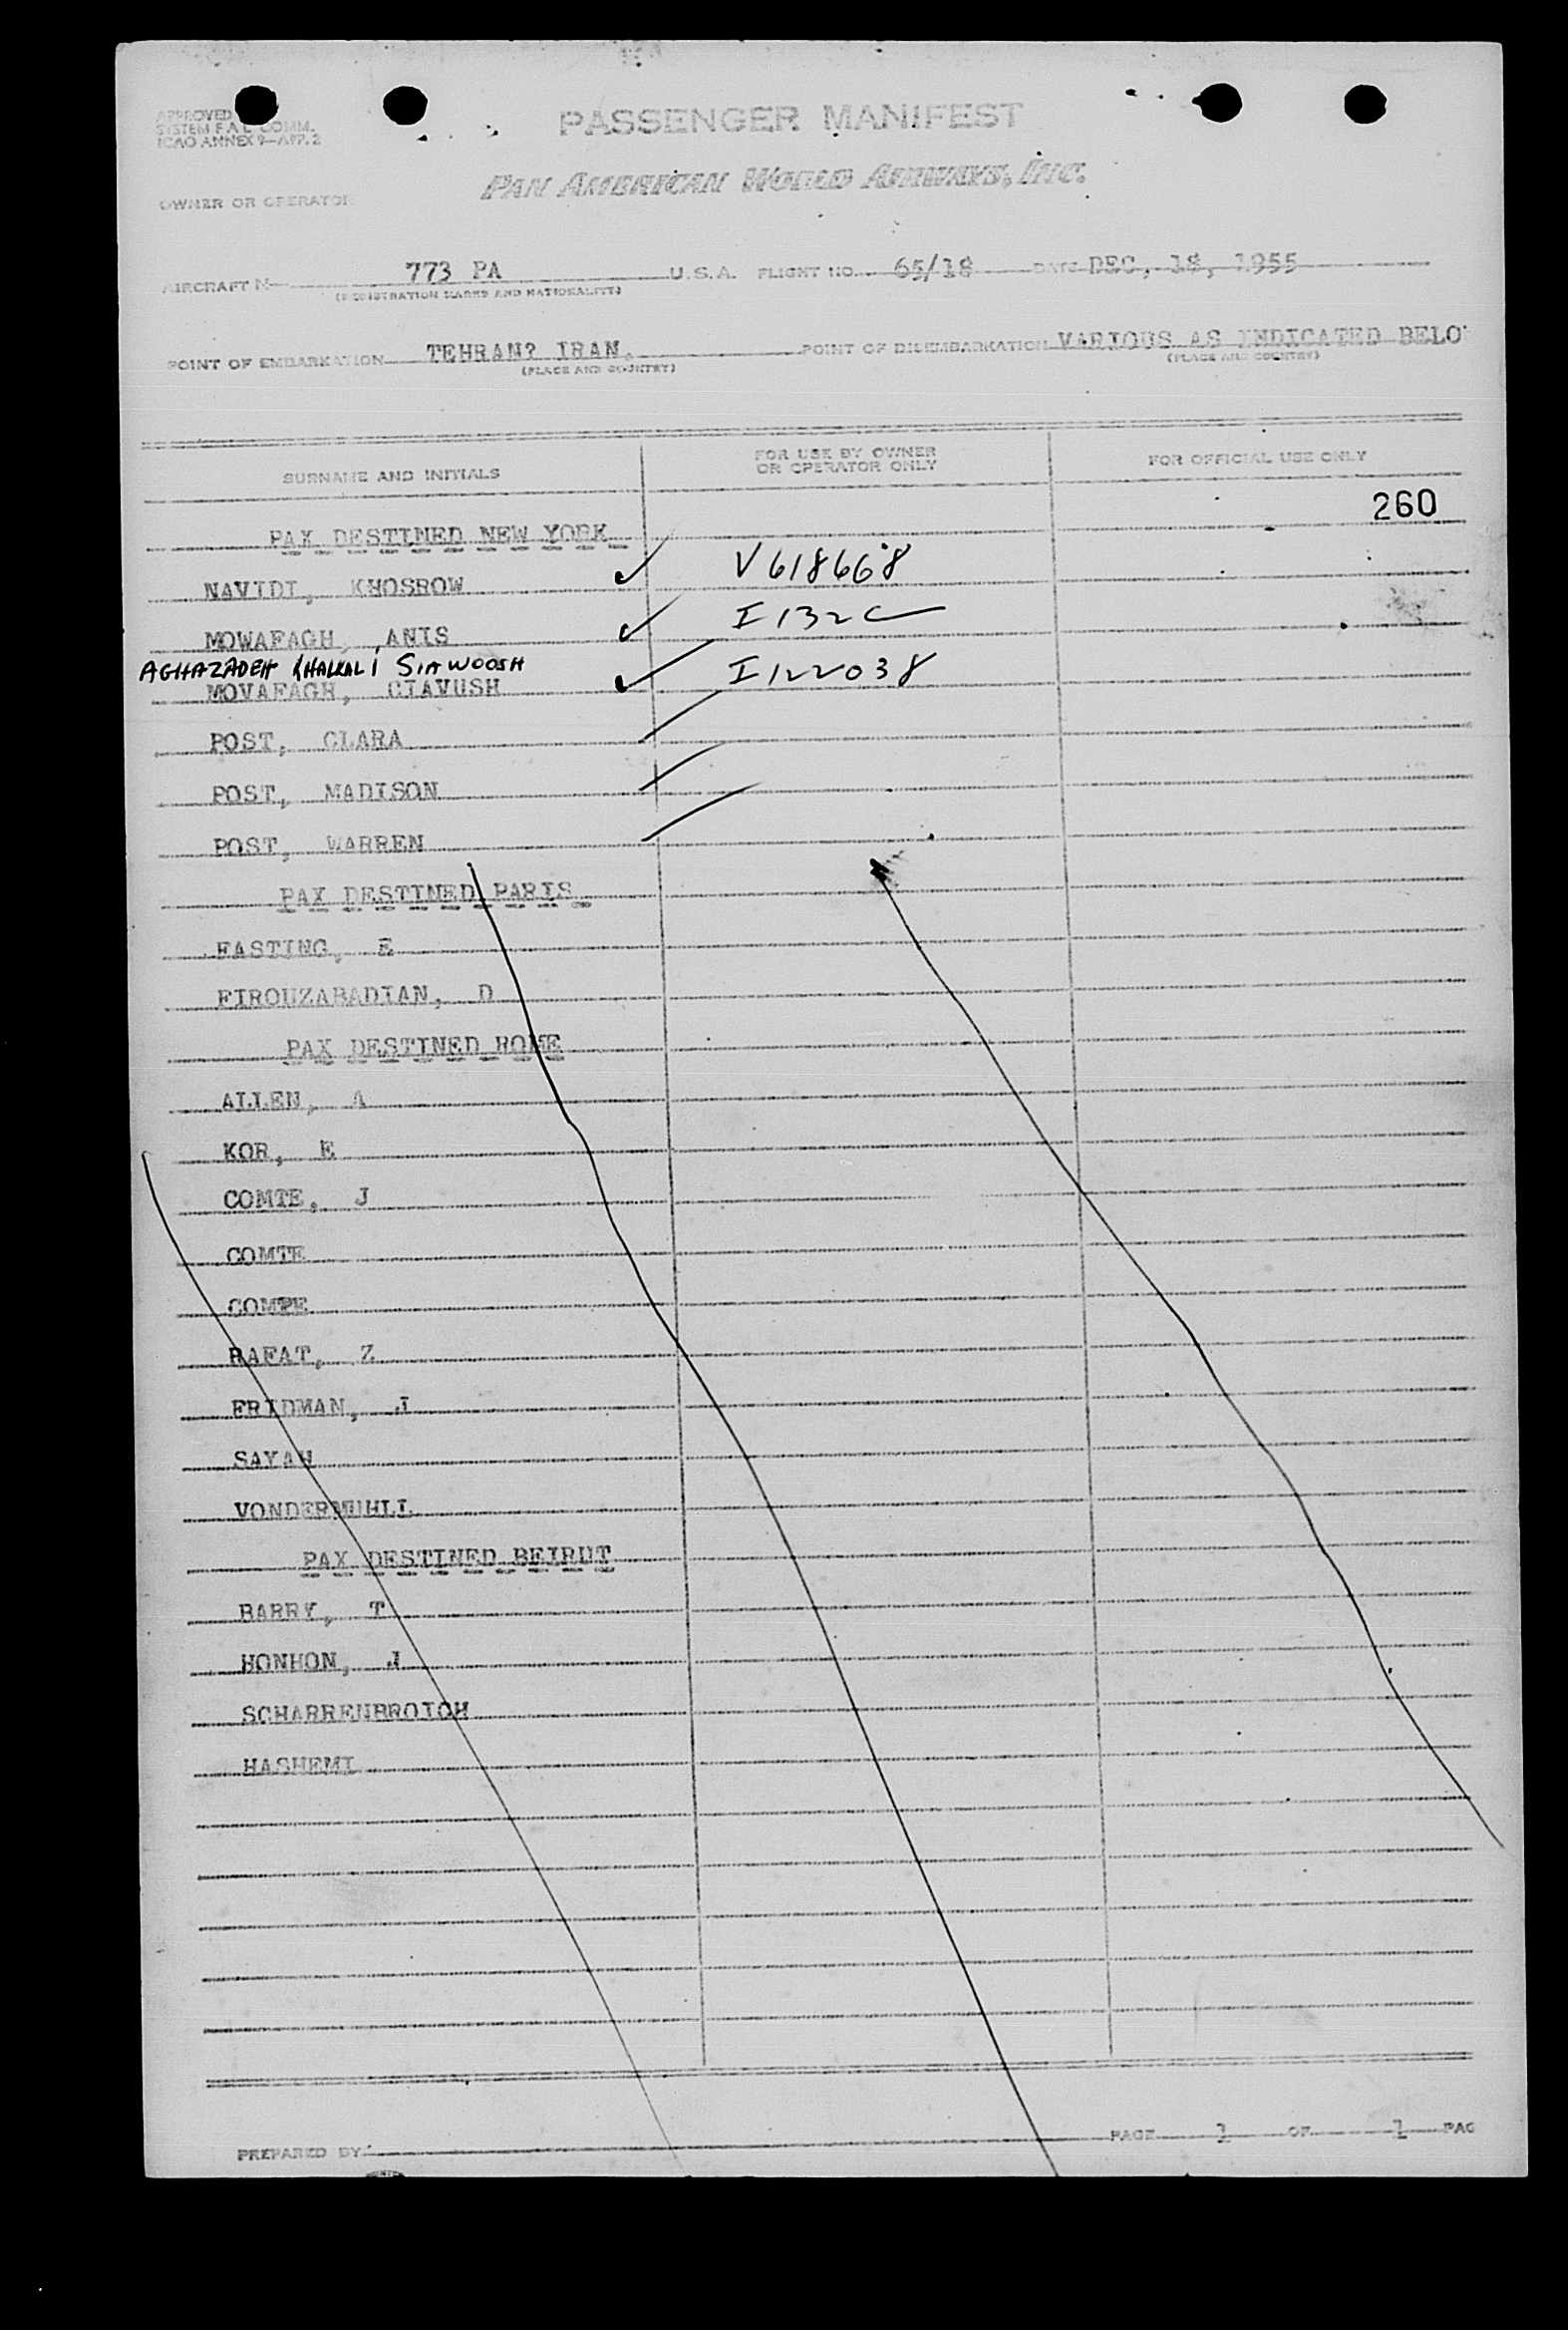 APPROVED
SYSTEM F A L COMM.
ICAO ANNEX 9-APP. 2
PASSENGER MANIFEST
PAN AMERICAN WORLD AIRWAYS, INC.
OWNER OR OPERATOR
AIRCRAFT N 773 PA U.S.A. FLIGHT NO. 65/18 DATE DEC, 18, 1955
(REGISTRATION MARKS AND NATIONALITY)
POINT OF EMBARKATION TEHRAN? IRAN. POINT OF DISEMBARKATION VARIOUS AS INDICATED BELO
(PLACE AND COUNTRY) (PLACE AND COUNTRY)
SURNAME AND INITIALS FOR USE BY OWNER OR OPERATOR ONLY FOR OFFICIAL USE ONLY
260
PAX DESTINED NEW YORK
NAVIDI, KHOSROW ✓ V618668
MOWAFAGH, ANIS ✓ I132
AGHAZADEH KHALKALI SIAWOOSH
MOVAFAGH, CIAVUSH ✓ I122038
POST, CLARA
POST, MADISON
POST, WARREN
PAX DESTINED PARIS
FASTING, E
FIROUZABADIAN, D
PAX DESTINED ROME
ALLEN, A
KOR, E
COMTE, J
COMTE
COMTE
RAFAT, Z
FRIDMAN, J
SAYAH
VONDERMUHLL
PAX DESTINED BEIRUT
BARRY, T
HONHON, J
SCHARRENBROICH
HASHEMI
PREPARED BY PAGE 1 OF 1 PAG